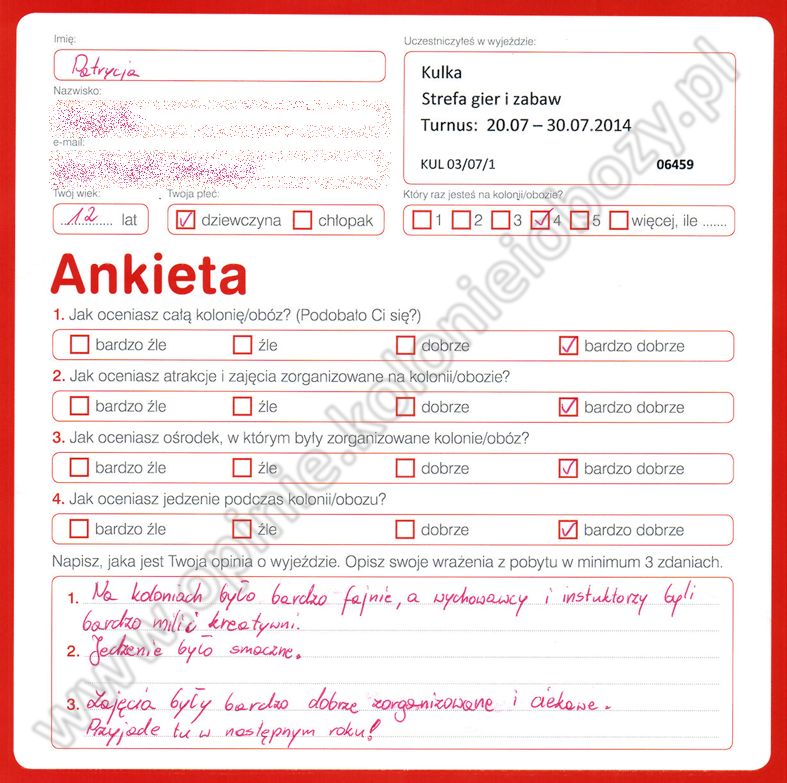 Imię:
Patrycja
Nazwisko:
e-mail:
Twój wiek:
12 lat
Twoja płeć:
dziewczyna chłopak
Uczestniczyłeś w wyjeździe:
Kulka
Strefa gier i zabaw
Turnus: 20.07 – 30.07.2014
KUL 03/07/1 06459
Który raz jesteś na kolonii/obozie?
1 2 3 4 5 więcej, ile .......
Ankieta
1. Jak oceniasz całą kolonię/obóz? (Podobało Ci się?)
bardzo źle źle dobrze bardzo dobrze
2. Jak oceniasz atrakcje i zajęcia zorganizowane na kolonii/obozie?
bardzo źle źle dobrze bardzo dobrze
3. Jak oceniasz ośrodek, w którym były zorganizowane kolonie/obóz?
bardzo źle źle dobrze bardzo dobrze
4. Jak oceniasz jedzenie podczas kolonii/obozu?
bardzo źle źle dobrze bardzo dobrze
Napisz, jaka jest Twoja opinia o wyjeździe. Opisz swoje wrażenia z pobytu w minimum 3 zdaniach.
1. Na koloniach było bardzo fajnie, a wychowawcy i instuktorzy byli
bardzo mili i kreatywni.
2. Jedzenie było smaczne.
3. Zajęcia były bardzo dobrze zorganizowane i ciekawe.
Przyjade tu w następnym roku!
www.opinie.kolonieiobozy.pl